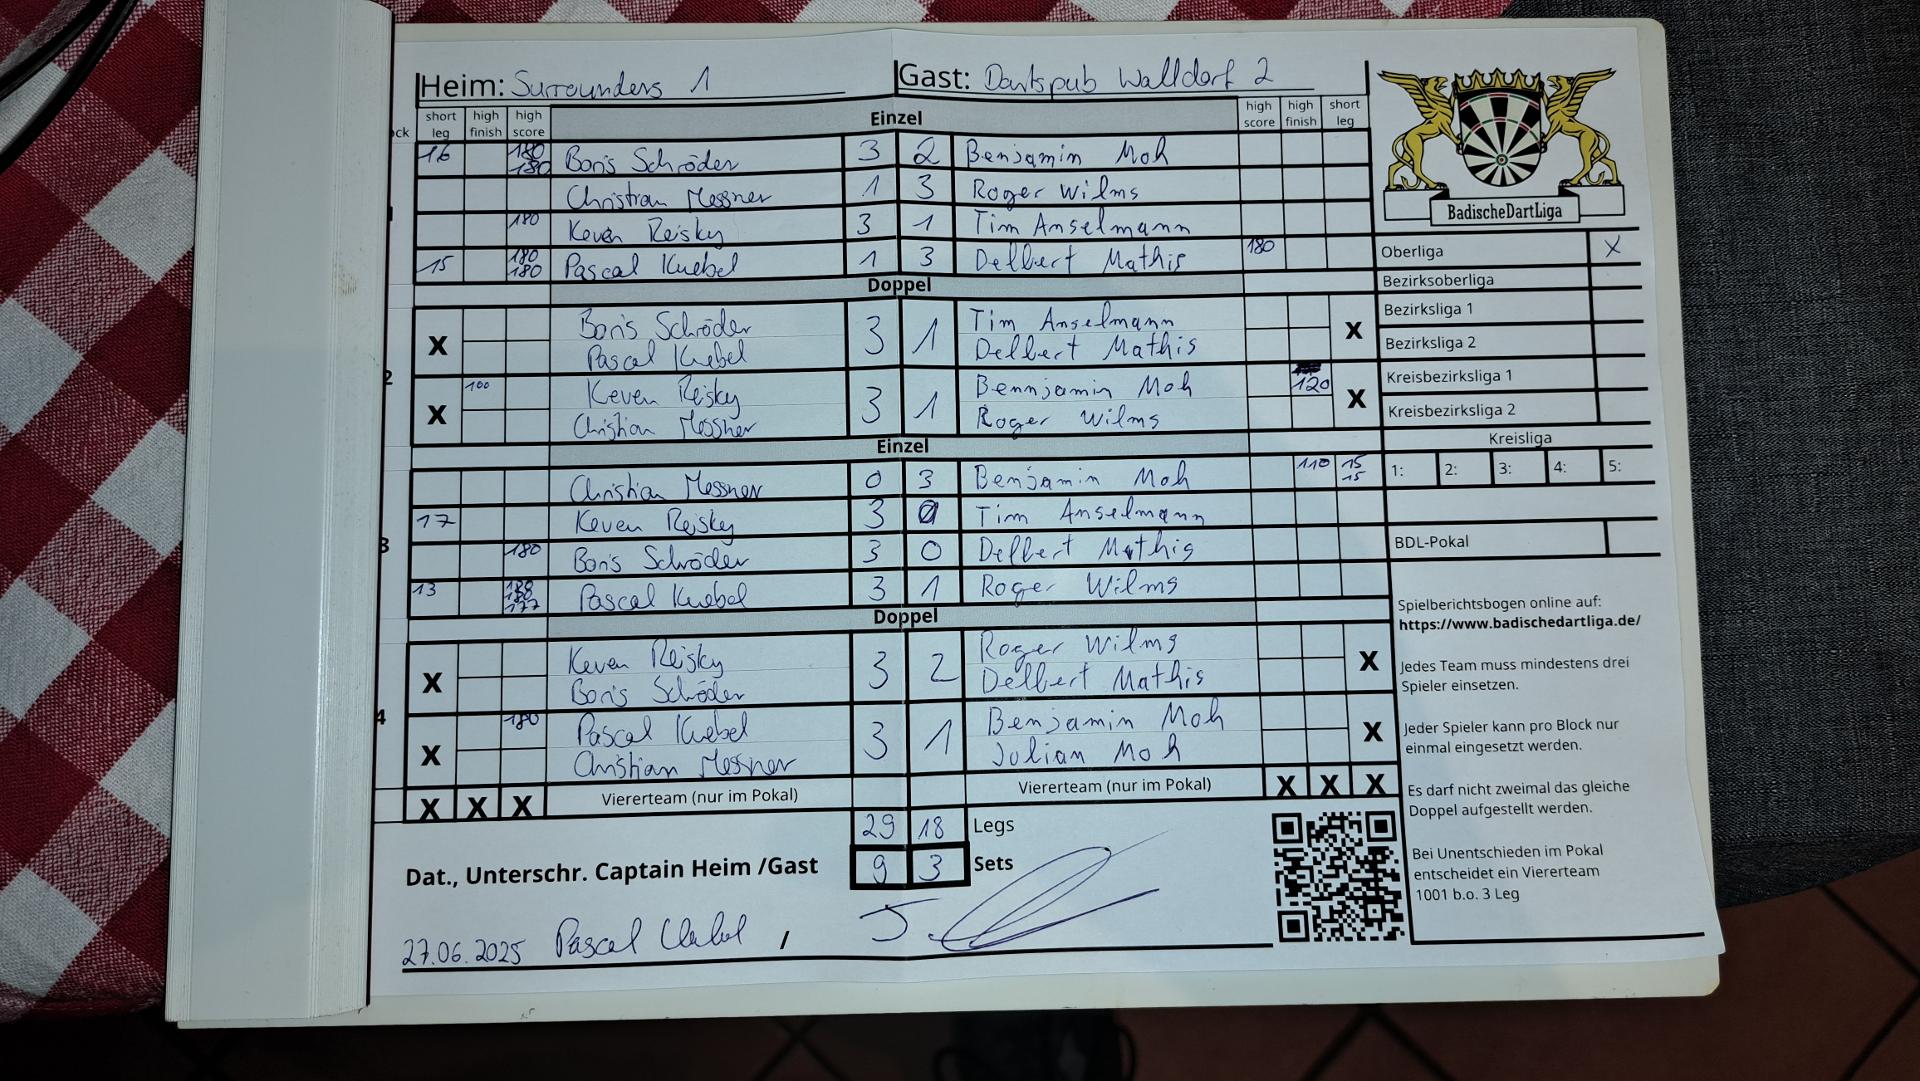 Heim: Surrounders 1 Gast: Dartspub Walldorf 2
ock short leg high finish high score Einzel high score high finish short leg
16 180 180 Boris Schröder 3 2 Benjamin Moh
1 Christian Messner 1 3 Roger Wilms
180 Keven Reisky 3 1 Tim Anselmann
15 180 180 Pascal Knebel 1 3 Delbert Mathis 180
Doppel
X Boris Schröder 3 1 Tim Anselmann X
Pascal Knebel Delbert Mathis
2 X 100 Keven Reisky 3 1 Bennjamin Moh 120 X
Christian Messner Roger Wilms
Einzel
Christian Messner 0 3 Benjamin Moh 110 15 15
17 Keven Reisky 3 0 Tim Anselmann
3 180 Boris Schröder 3 0 Delbert Mathis
13 180 177 Pascal Knebel 3 1 Roger Wilms
Doppel
X Keven Reisky 3 2 Roger Wilms X
Boris Schröder Delbert Mathis
4 X 180 Pascal Knebel 3 1 Benjamin Moh X
Christian Messner Julian Moh
X X X Viererteam (nur im Pokal) Viererteam (nur im Pokal) X X X
29 18 Legs
Dat., Unterschr. Captain Heim /Gast 9 3 Sets
27.06.2025 Pascal Knebel / J.
BadischeDartLiga
Oberliga X
Bezirksoberliga
Bezirksliga 1
Bezirksliga 2
Kreisbezirksliga 1
Kreisbezirksliga 2
Kreisliga
1: 2: 3: 4: 5:
BDL-Pokal
Spielberichtsbogen online auf:
https://www.badischedartliga.de/
Jedes Team muss mindestens drei
Spieler einsetzen.
Jeder Spieler kann pro Block nur
einmal eingesetzt werden.
Es darf nicht zweimal das gleiche
Doppel aufgestellt werden.
Bei Unentschieden im Pokal
entscheidet ein Viererteam
1001 b.o. 3 Leg